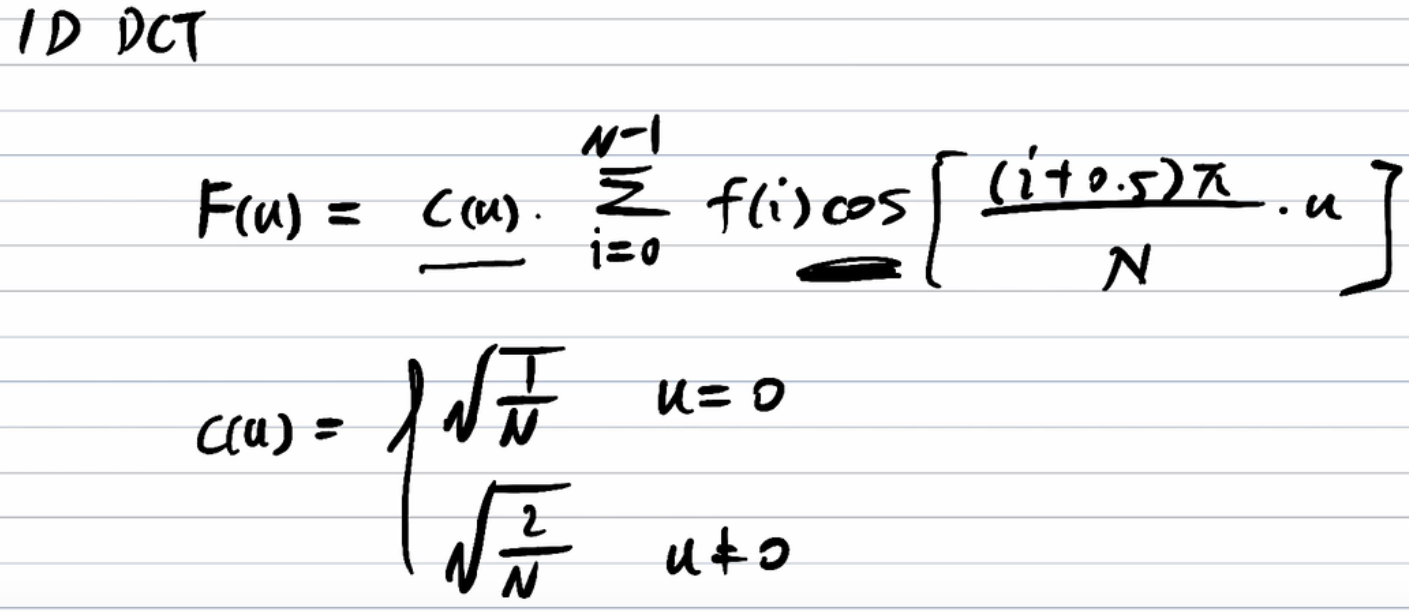 1D DCT
F(u) = C(u) · Σ_{i=0}^{N-1} f(i) cos [ (i+0.5)π / N · u ]
C(u) = { √(1/N)  u = 0
√(2/N)  u ≠ 0